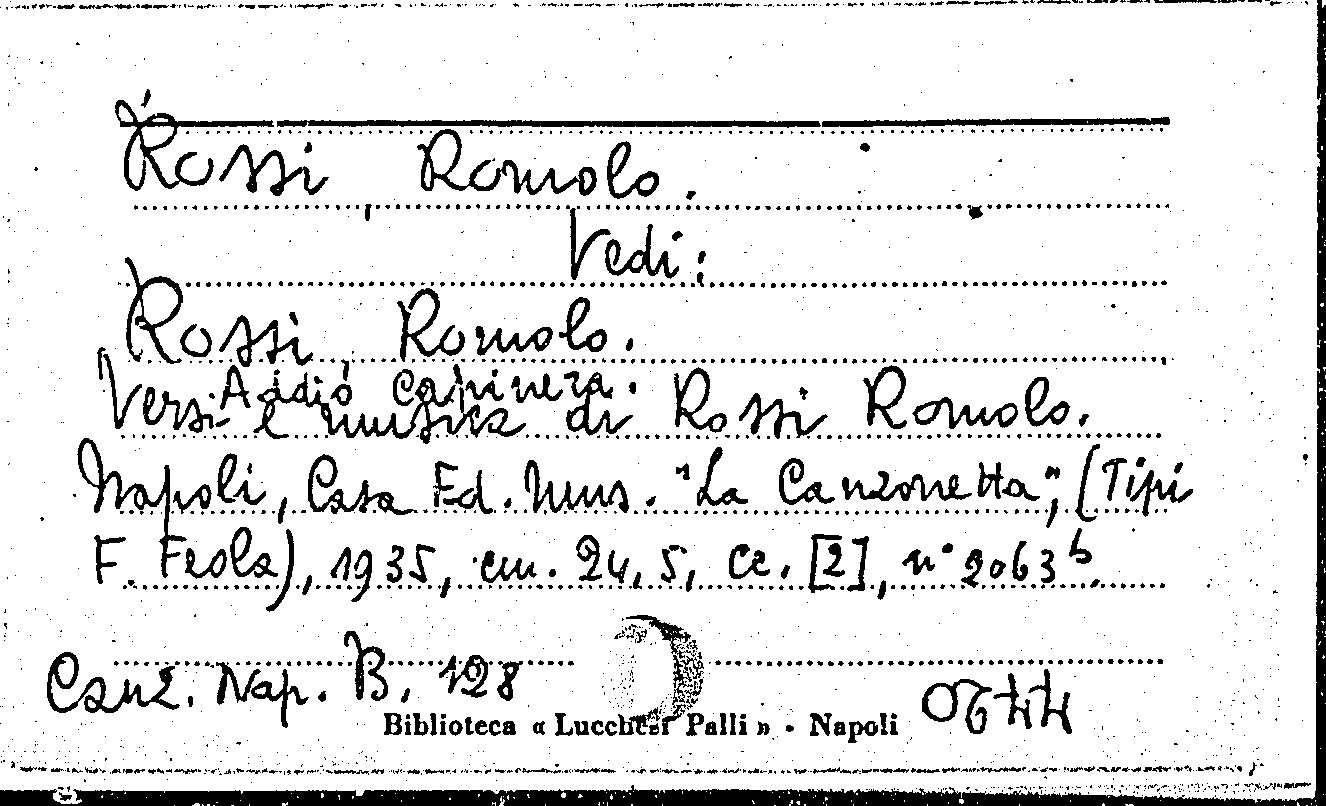 Rossi Romolo.
Vedi:
Rossi, Romolo.
Addio, Capinera.
Versi e musica di Rossi Romolo.
Napoli, Casa Ed. Mus. "La Canzonetta", (Tipi
F. Feola), 1935, cm. 24,5, cc. [2], n° 2063 b.
Canz. Nap. B. 128
Biblioteca « Lucchesi Palli » - Napoli
0644